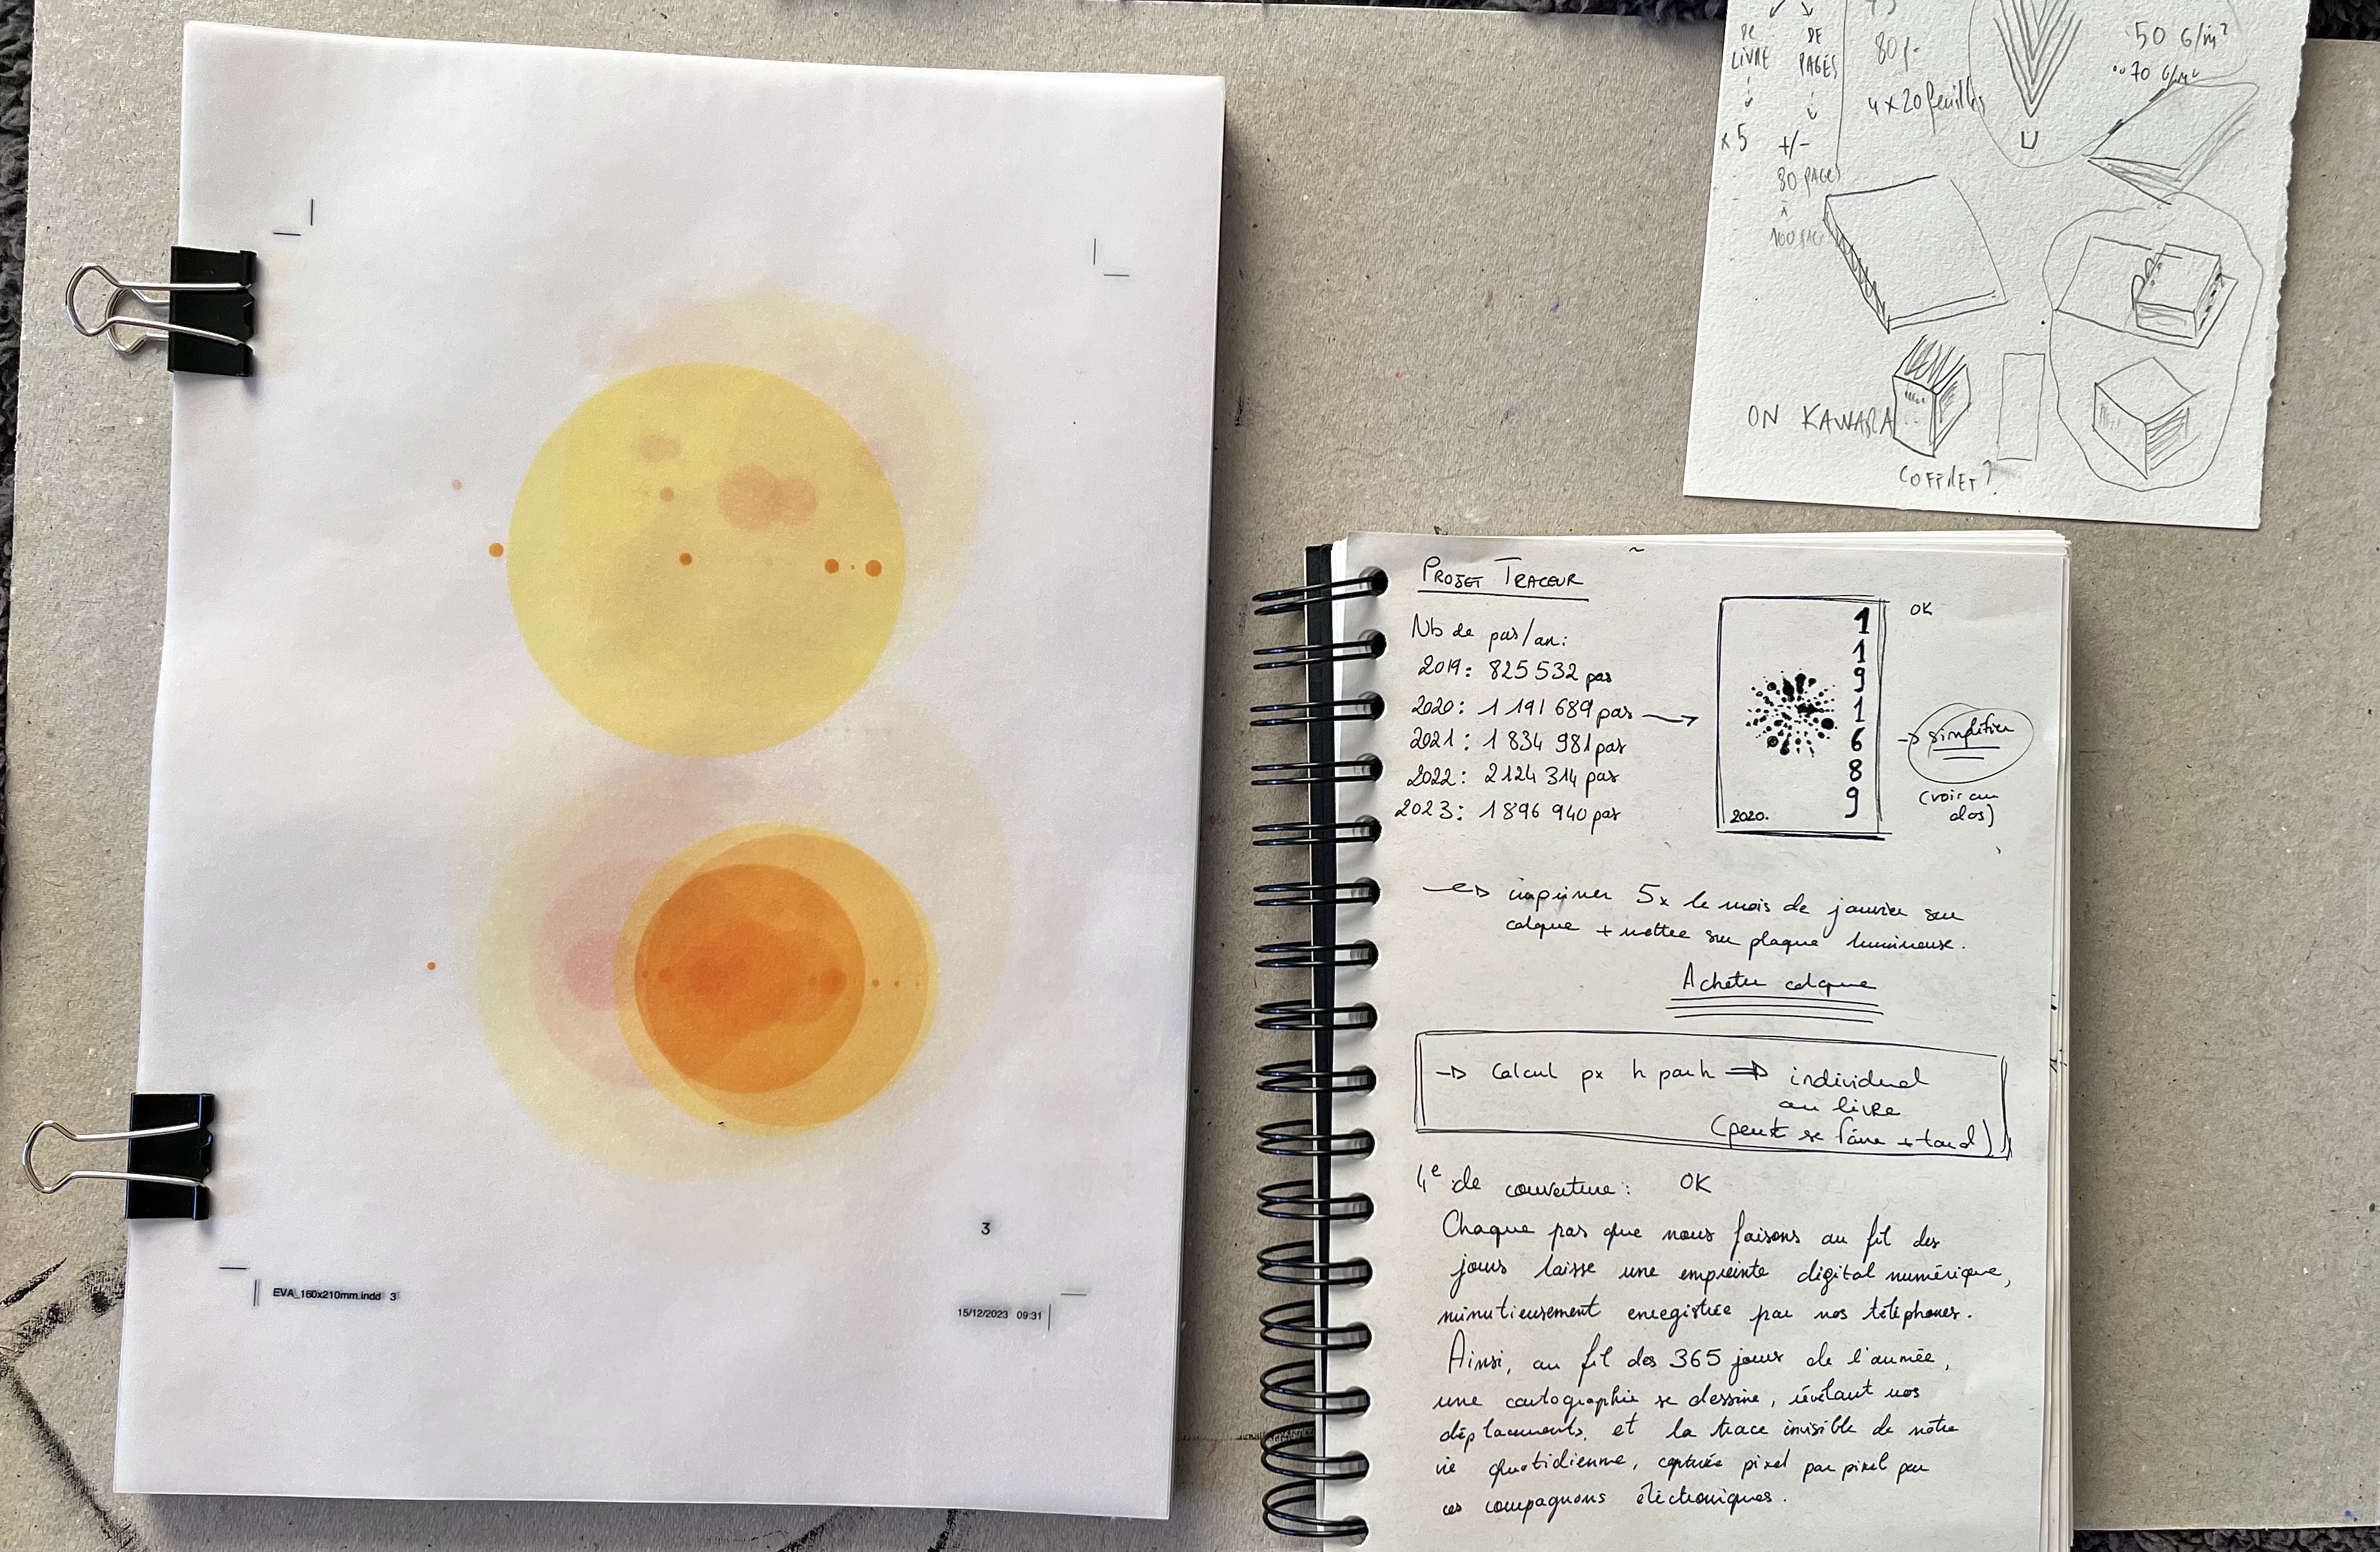 3
EVA_160x210mm.indd 3
15/12/2023 09:31
DE DE
LIVRE PAGES
x 5 +/-
80 PAGES
à
100 PAGES
80 p.
4 x 20 feuilles
50 G/m²
70 G/m²
U
ON KAWARA
COFFRET ?
PROJET TRACEUR
Nb de pas/an:
2019: 825 532 pas
2020: 1 191 689 pas
2021: 1 834 981 pas
2022: 2 124 314 pas
2023: 1 896 940 pas
1
1
9
1
6
8
9
2020.
OK
simplifier
(voir au
dos)
imprimer 5x le mois de janvier sur
calque + mettre sur plaque lumineuse.
Acheter calque
Calcul px h par h individuel
au livre
(peut se faire + tard)
4e de couverture: OK
Chaque pas que nous faisons au fil des
jours laisse une empreinte digital numérique,
minutieusement enregistrée par nos téléphones.
Ainsi, au fil des 365 jours de l'année,
une cartographie se dessine, révélant nos
déplacements, et la trace invisible de notre
vie quotidienne, capturée pixel par pixel par
ces compagnons électroniques.